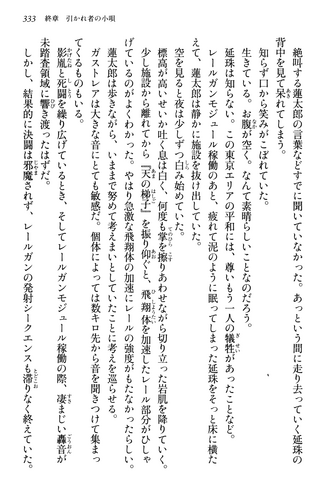 333　終章　引かれ者の小唄
絶叫する蓮太郎の言葉などすでに聞いていなかった。あっという間に走り去っていく延珠の
背中を見て呆れてしまう。
知らず口から笑みがこぼれていた。
生きている。お腹が空く。なんて素晴らしいことなのだろう。
延珠は知らない。この東京エリアの平和には、尊いもう一人の犠牲があったことなど。
レールガンモジュール稼働のあと、疲れて泥のように眠ってしまった延珠をそっと床に横た
えて、蓮太郎は静かに施設を抜け出していた。
空を見ると夜は少しずつ白み始めていた。
標高が高いせいか吐く息は白く、何度も掌を擦りあわせながら切り立った岩肌を降りていく。
少し施設から離れてから『天の梯子』を振り仰ぐと、飛翔体を加速したレール部分がひしゃ
げているのがよくわかった。やはり急激な飛翔体の加速にレールの強度がもたなかったらしい。
蓮太郎は歩きながら、いままで努めて考えまいとしていたことに考えを巡らせる。
ガストレアは大きな音にとても敏感だ。個体によっては数キロ先から音を聞きつけて集まっ
てくるものもいる。
影胤と死闘を繰り広げているとき、そしてレールガンモジュール稼働の際、凄まじい轟音が
未踏査領域に響き渡ったはずだ。
しかし、結果的に決闘は邪魔されず、レールガンの発射シークエンスも滞りなく終えていた。